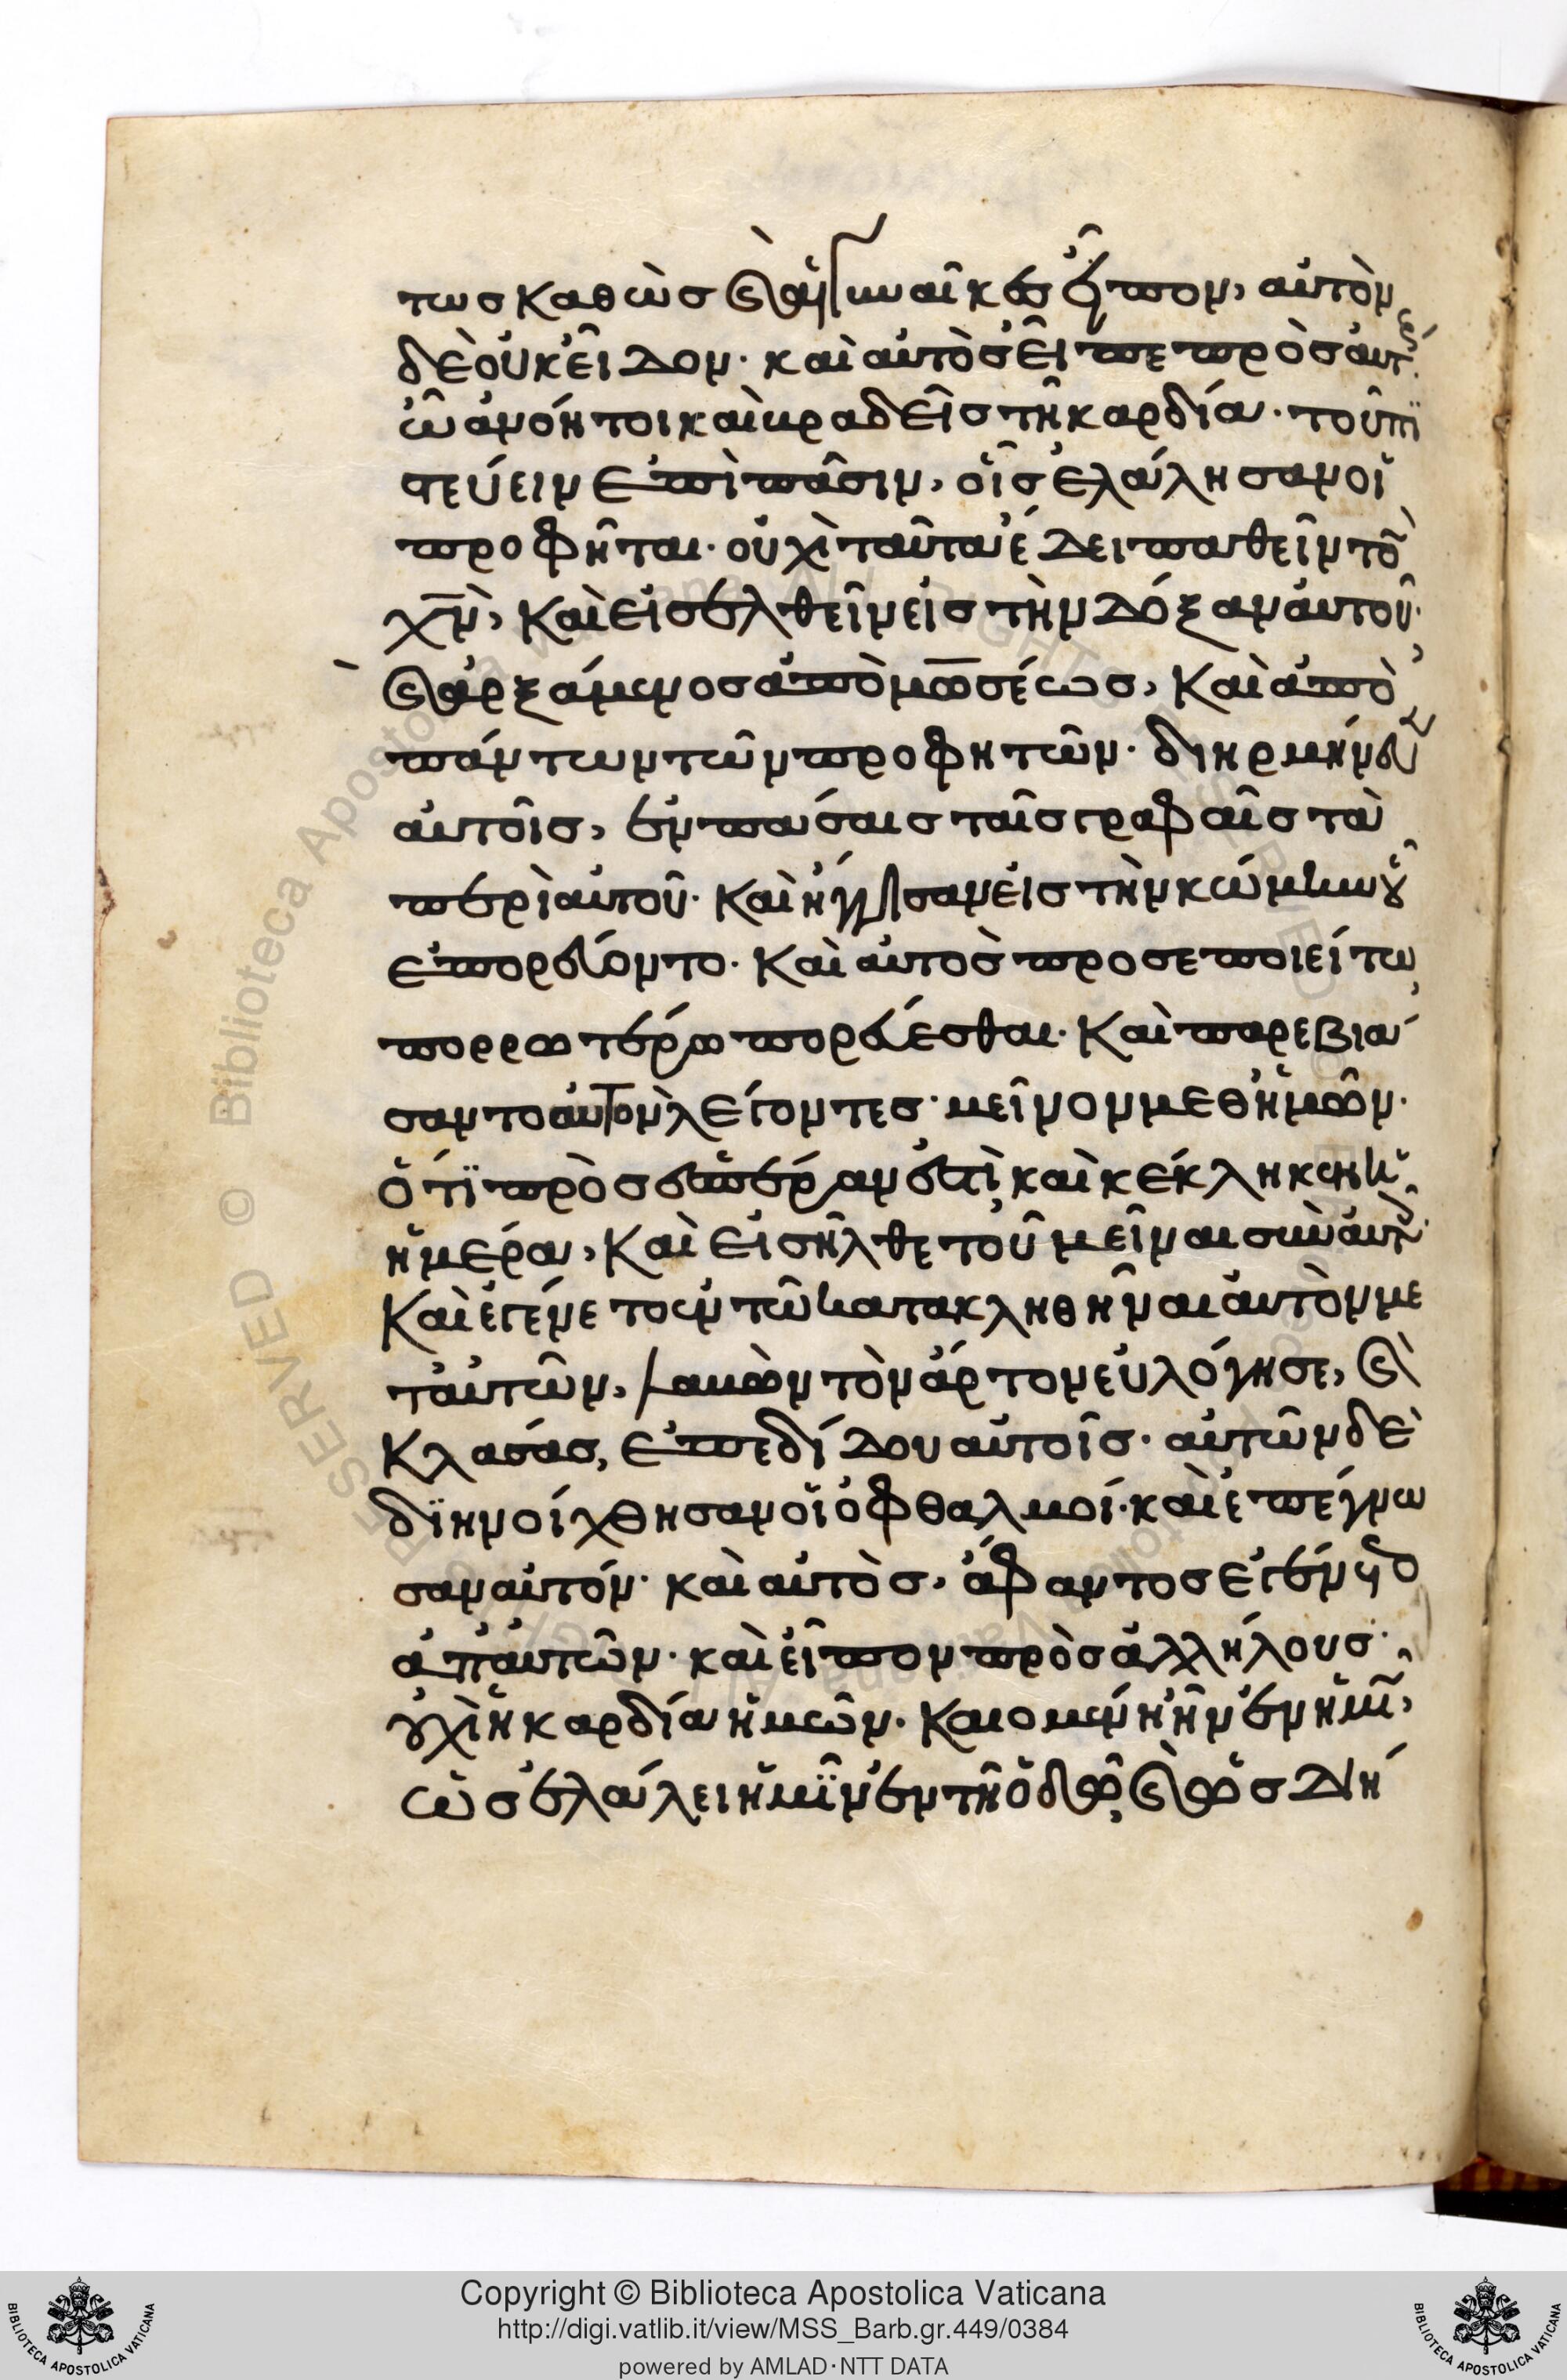 τωσ καθὼσ καὶ αἱ γυναῖκεσ εἶπον, αὐτὸν
δὲ οὐκ εἶδον· καὶ αὐτὸσ εἶπε πρὸσ αὐτούσ
ὦ ἀνόητοι καὶ βραδεῖσ τῆ καρδία· τοῦ πι
στεύειν ἐπὶ πᾶσιν, οἷσ ἐλάλησαν οἱ
προφῆται· οὐχὶ ταῦτα ἔδει παθεῖν τὸ
χν, καὶ εἰσελθεῖν εἰσ τὴν δόξαν αὐτοῦ·
καὶ ἀρξάμενοσ ἀπὸ μωσέωσ, καὶ ἀπὸ
πάντων τῶν προφητῶν· διηρμήνευ
αὐτοῖσ, ἐν πάσαισ ταῖσ γραφαῖσ τὰ
περὶ αὐτοῦ· καὶ ἤγγισαν εἰσ τὴν κώμην οὗ
ἐπορεύοντο· καὶ αὐτὸσ προσεποιείτω
πορρωτέρω πορεύεσθαι· καὶ παρεβιά
σαντο αὐτὸν λέγοντεσ· μεῖνον μεθ ἡμῶν·
ὅτι πρὸσ ἑσπέραν ἐστὶ καὶ κέκληκεν ἡ
ἡμέρα, καὶ εἰσῆλθε τοῦ μεῖναι σὺν αὐτοῖσ·
καὶ ἐγένετο ἐν τῶ κατακληθῆναι αὐτὸν με
τ αὐτῶν, λαβὼν τὸν ἄρτον εὐλόγησε, καὶ
κλάσασ, ἐπεδίδου αὐτοῖσ· αὐτῶν δὲ
διηνοίχθησαν οἱ ὀφθαλμοί· καὶ ἐπέγνω
σαν αὐτόν· καὶ αὐτὸσ, ἄφαντοσ ἐγένετο
ἀπ αὐτῶν· καὶ εἶπον πρὸσ ἀλλήλουσ·
οὐχὶ ἡ καρδία ἡμῶν· καιομένη ἦν ἐν ἡμῖν,
ὡσ ἐλάλει ἡμῖν ἐν τῆ ὁδῶ, καὶ ὡσ διή